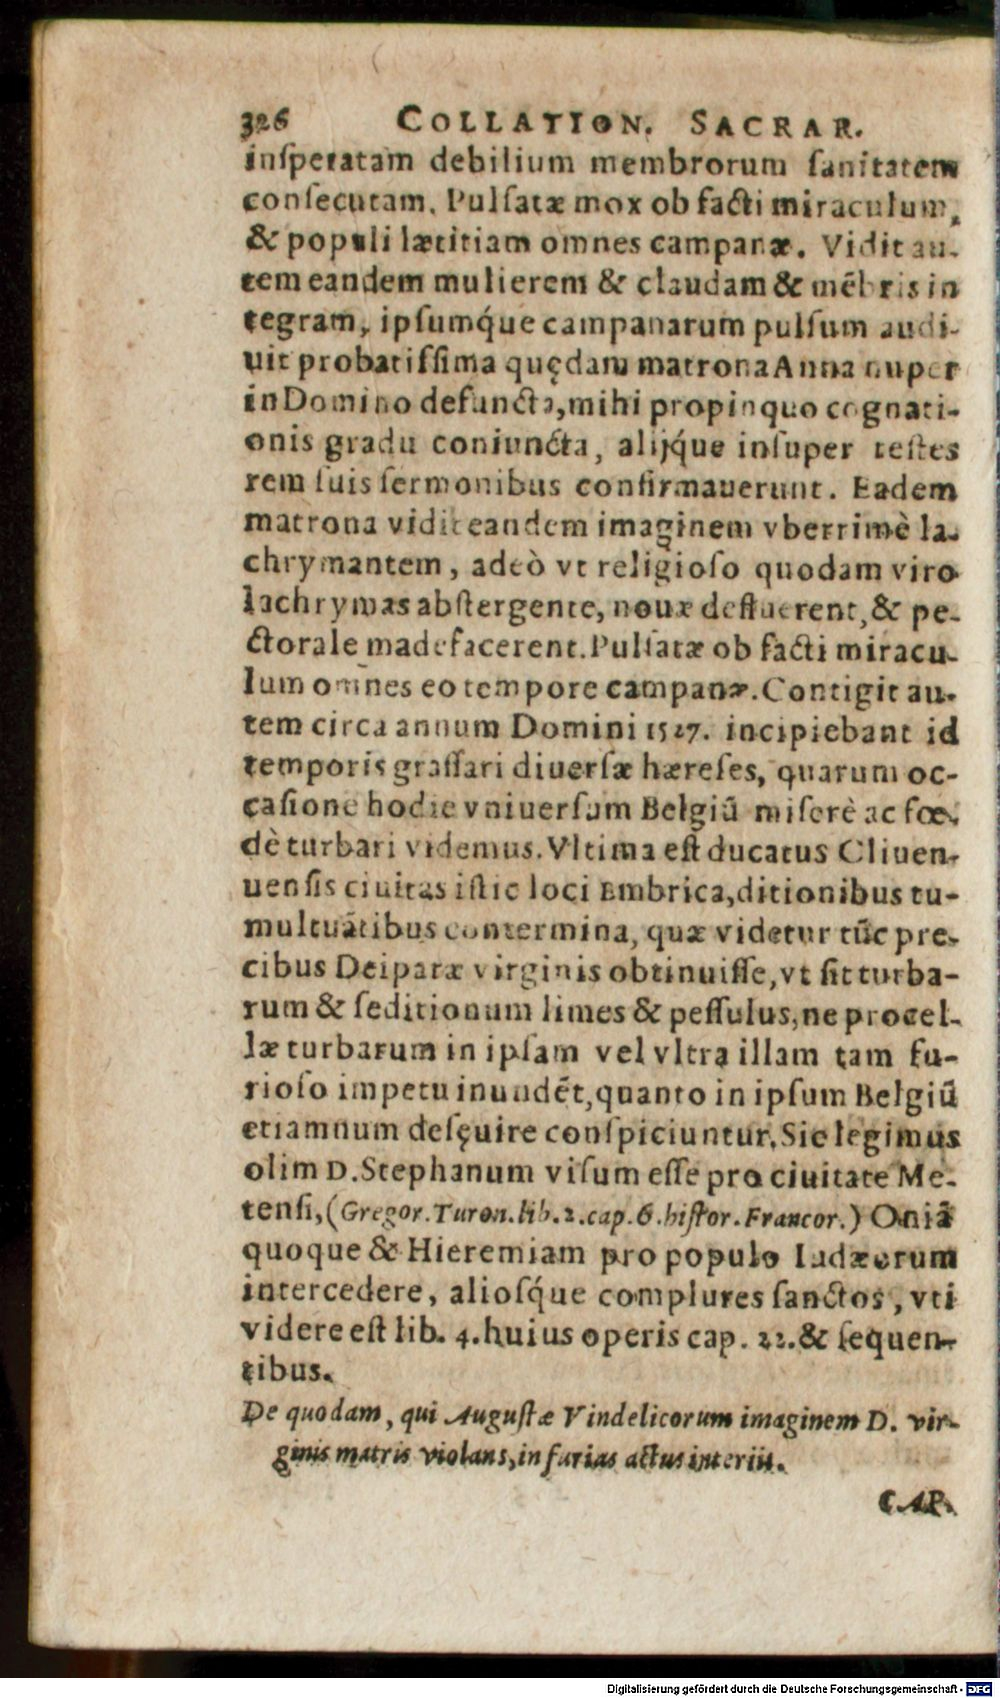 326 COLLATION. SACRAR.
inſperatam debilium membrorum ſanitatem
conſecutam. Pulſatæ mox ob facti miraculum,
& populi lætitiam omnes campanæ. Vidit au-
tem eandem mulierem & claudam & mẽbris in
tegram, ipſumq́ue campanarum pulſum audi-
uit probatiſſima quędam matrona Anna nuper
in Domino defuncta, mihi propinquo cognati-
onis gradu coniuncta, alijq́ue inſuper teſtes
rem ſuis ſermonibus confirmauerunt. Eadem
matrona vidit eandem imaginem vberrimè la-
chrymantem, adeò vt religioſo quodam viro
lachrymas abſtergente, nouæ defluerent, & pe-
ctorale madefacerent. Pulſatæ ob facti miracu-
lum omnes eo tempore campanæ. Contigit au-
tem circa annum Domini 1527. incipiebant id
temporis graſſari diuerſæ hæreſes, quarum oc-
caſione hodie vniuerſum Belgiũ miſerè ac fœ-
dè turbari videmus. Vltima eſt ducatus Cliuen-
uenſis ciuitas iſtic loci Embrica, ditionibus tu-
multuãtibus contermina, quæ videtur tũc pre-
cibus Deiparæ virginis obtinuiſſe, vt ſit turba-
rum & ſeditionum limes & peſſulus, ne procel-
læ turbarum in ipſam vel vltra illam tam fu-
rioſo impetu inundẽt, quanto in ipſum Belgiũ
etiamnum deſęuire conſpiciuntur. Sic legimus
olim D. Stephanum viſum eſſe pro ciuitate Me-
tenſi, (Gregor. Turon. lib. 2. cap. 6. hiſtor. Francor.) Oniã
quoque & Hieremiam pro populo Iudæorum
intercedere, alioſq́ue complures ſanctos, vti
videre eſt lib. 4. huius operis cap. 22. & ſequen-
tibus.
De quodam, qui Auguſtæ Vindelicorum imaginem D. vir-
ginis matris violans, in furias actus interiit.
CAP.
Digitalisierung gefördert durch die Deutsche Forschungsgemeinschaft - DFG